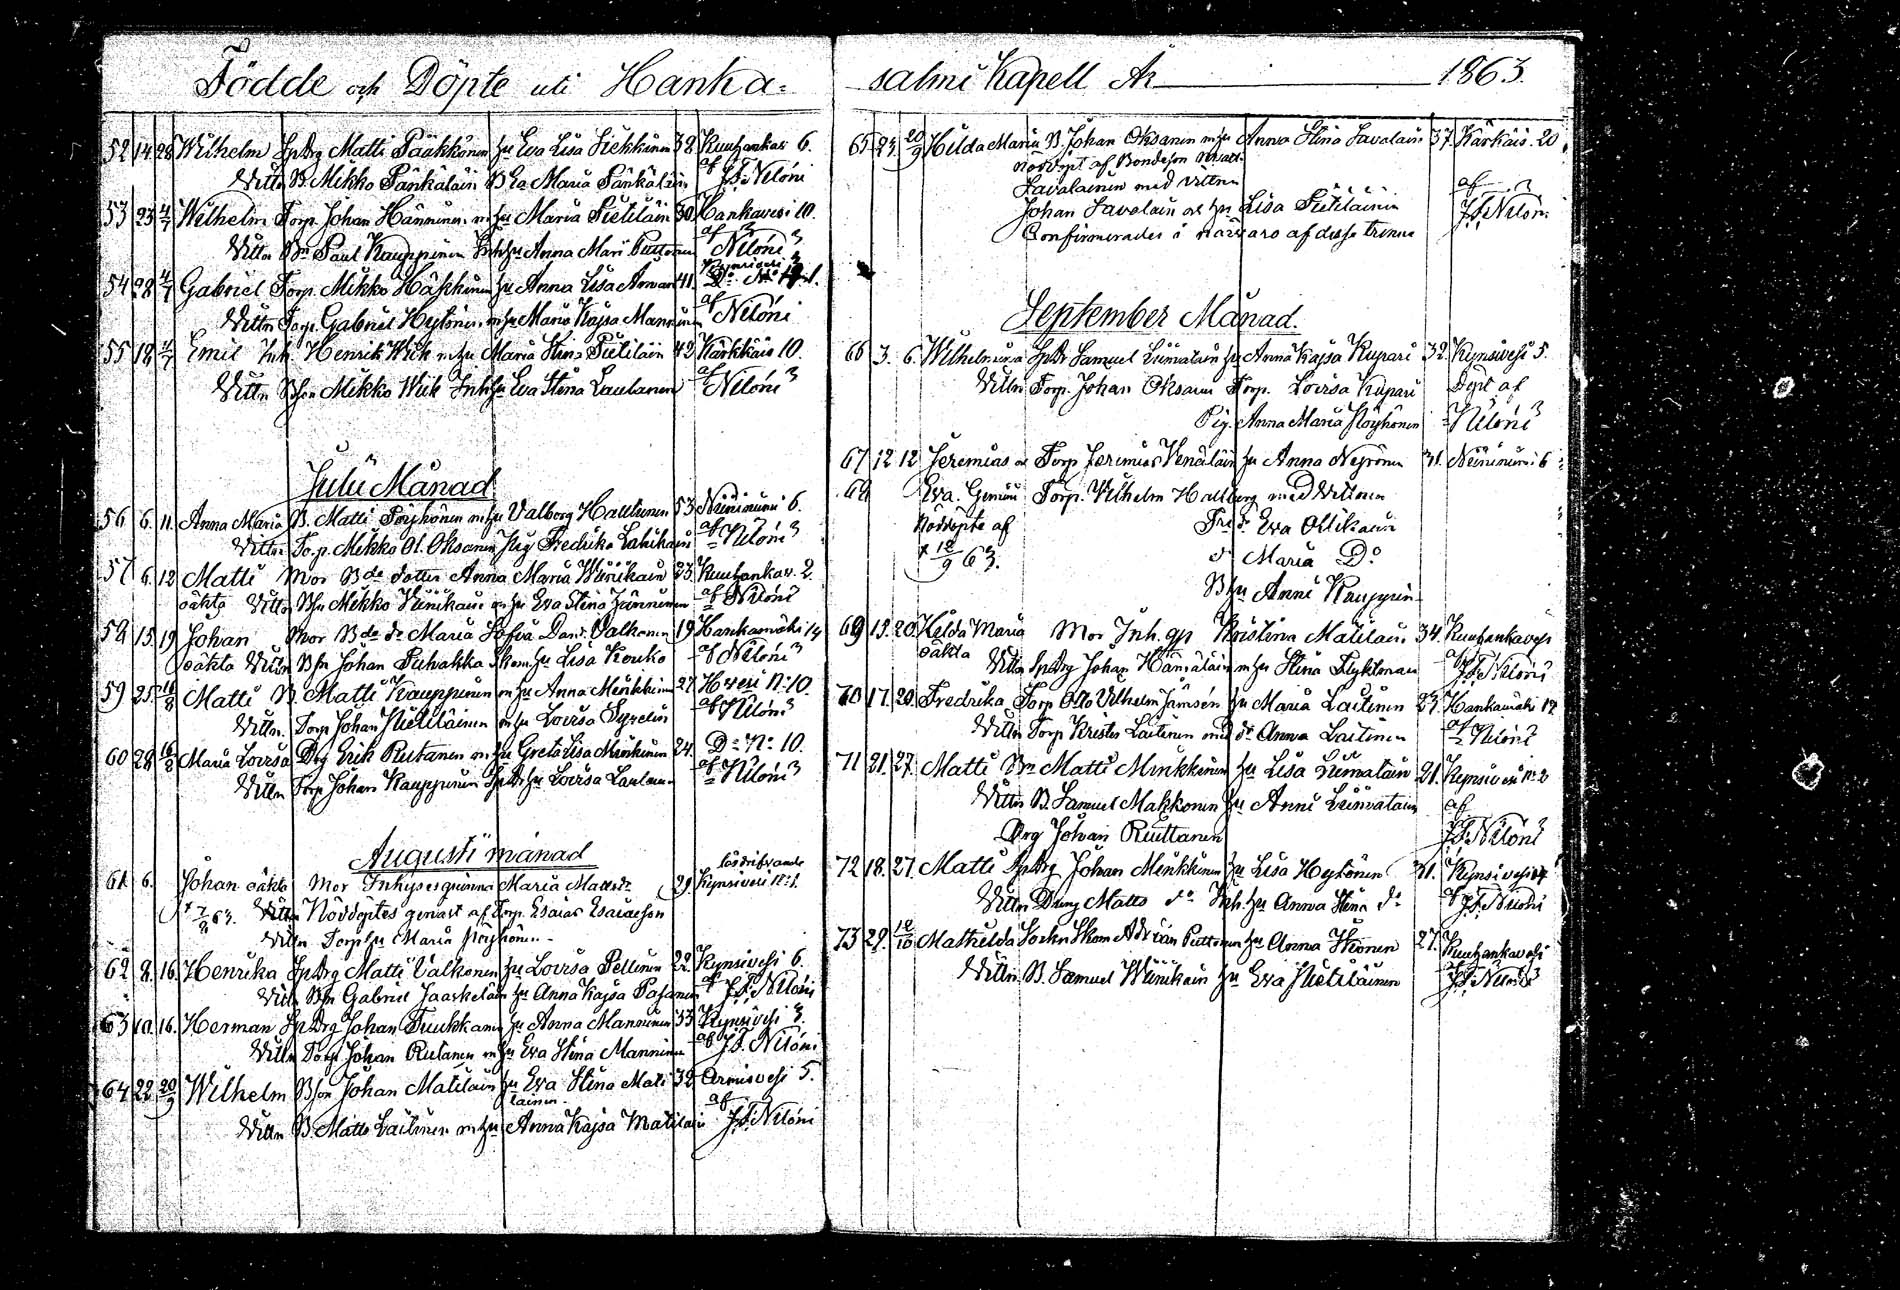 Födde och Döpte uti Hanka-
52 14 28 Wilhelm SpDrg Matti Pääkkönen hu Eva Lisa Liekkinen 38 Kuuhankav 6.
Wittn B. Mikko Pänkäläin Ba Maria Pänkäläin af J.F. Niloni
53 23 4/7 Wilhelm Torp. Johan Hänninen m hu Maria Pietiläin 30. Hankavesi 10.
Wittn Bn Paul Kauppinen Inh hu Anna Mari Puttonen af Niloni
54 28 4/7 Gabriel Torp. Mikko Häkkinen hu Anna Lisa 41. Kynsivesi No 1.
Wittn Torp. Gabriel Heytönen m hu Maria Kajsa Manninen af Niloni
55 18 4/7 Emil Inh. Henrik Wick m hu Maria Stina Pietiläin 42 Kärkkäis 10.
Wittn Bson Mikko Wick Inh hu Eva Stina Lautanen af Niloni
Julii Månad
56 6. 11. Anna Maria B. Matti Pöyhönen m hu Valborg Hautunen 53 Niinimäki 6.
Wittn Torp. Mikko Ol. Oksanen Pig Fredrika Lahikain af Niloni
57 6. 12 Matti Mor Bde dotter Anna Maria Wiinikain 23. Kuuhankav. 2.
oäkta Wittn Bsn Mikko Wiinikain m hu Eva Stina Jänninen af Niloni
58 15. 19 Johan Mor Bde dr Maria Sofia Dav:dr Valkonen 19 Hankamäki 14
oäkta Wittn Bsn Johan Puhakka Skom. hu Lisa Kouko af Niloni
59 25. 16/8 Matti B. Matti Kauppinen m hu Anna Minkkinen 27 Hvesi No 10.
Wittn. Torp Johan Pietiläinen m hu Lovisa Syrelin af Niloni
60 28 16/8 Maria Lovisa Drg Erik Rutanen m hu Greta Lisa Minkinen 24. Do No 10.
Wittn Torp Johan Kauppinen SpDr hu Lovisa Lautanen af Niloni
Augusti månad
61 6. Johan oäkta Mor Inhysesqvinna Maria Mattsdr 29. lösdrifvande Kynsivesi No 1.
† 7/8 63. Wittn Nöddöptes genast af Torp. Esaias Esaiaeson
Wittn Torp hu Maria Pöyhönen
62 8. 16. Henrika SpDrg Matti Valkonen hu Lovisa Pellinen 22. Kynsivesi 6.
Wittn Bsn Gabriel Jaaskeläin hu Anna Kajsa Pasanen af J.F. Niloni
63 10. 16. Herman SpDrg Johan Tuukkanen hu Anna Manninen 33 Kynsivesi 3.
Wittn Torp Johan Rutanen m hu Eva Stina Manninen af J.F. Niloni
64 22 20/9 Wilhelm Bson Johan Matiläin hu Eva Stina Mati- 32 Armisvesi 5.
lainen. af
Wittn B. Matts Laitinen m hu Anna Kajsa Matilain J.F. Niloni
salmi Kapell År 1863.
65 23. 20/9 Hilda Maria B. Johan Oksanen m hu Anna Stina Savalain 37. Kärkäis. 20
nöddöpt af Bondeson
Savalainen med Vittnen af
Johan Savalain och hu Lisa Pietiläinen J.F. Niloni
Confirmerades i närvaro af dessa trenne
September Månad.
66 3. 6. Wilhelmina SpDr Samuel Liimatain hu Anna Kajsa Kupari 32. Kynsivesi 5.
Wittn Torp. Johan Oksanen Torp. Lovisa Kupari Döpt af
Pig. Anna Maria Pöyhönen Niloni
67 12 12 Jeremias o Torp Jeremias Venäläin hu Anna Neyrönen 31. Niinimäki 6
68 Eva. Gemini Torp. Wilhelm Hallberg med Vittnen
Nöddöpte af Eva Ollikain
† 12/9 63. dr Maria Do
B hu Anni Kauppin
69 15. 20. Hilda Maria Mor Inh. qp Kristina Matilain 34. Kuuhankavesi
oäkta Wittn SpDrg Johan Hämäläin m hu Stina Flyktman af J.F. Niloni
70 17. 20. Fredrika Torp Otto Vilhelm Jämsén hu Maria Laitinen 27. Hankamäki 12
Wittn Torp Krister Laitinen med dr Anna Laitinen af Niloni
71 21. 27. Matti Bn Matti Minkkinen hu Lisa Liimatain 21. Kynsivesi No 2
Wittn B. Samuel Makkonen hu Anni Liimatain af
Drg Johan Ruuttanen J.F. Niloni
72 18. 27. Matti SpDrg Johan Minkkinen hu Lisa Heytönen 31. Kynsivesi
Wittn Dreng Matts do Inh. hu Anna Stina do af J.F. Niloni
73 29. 18/10 Mathilda Sockn Skom Adrian Puttonen hu Anna Ikonen 27. Kuuhankavesi
Wittn B. Samuel Wiinikain hu Eva Pietiläinen J.F. Niloni